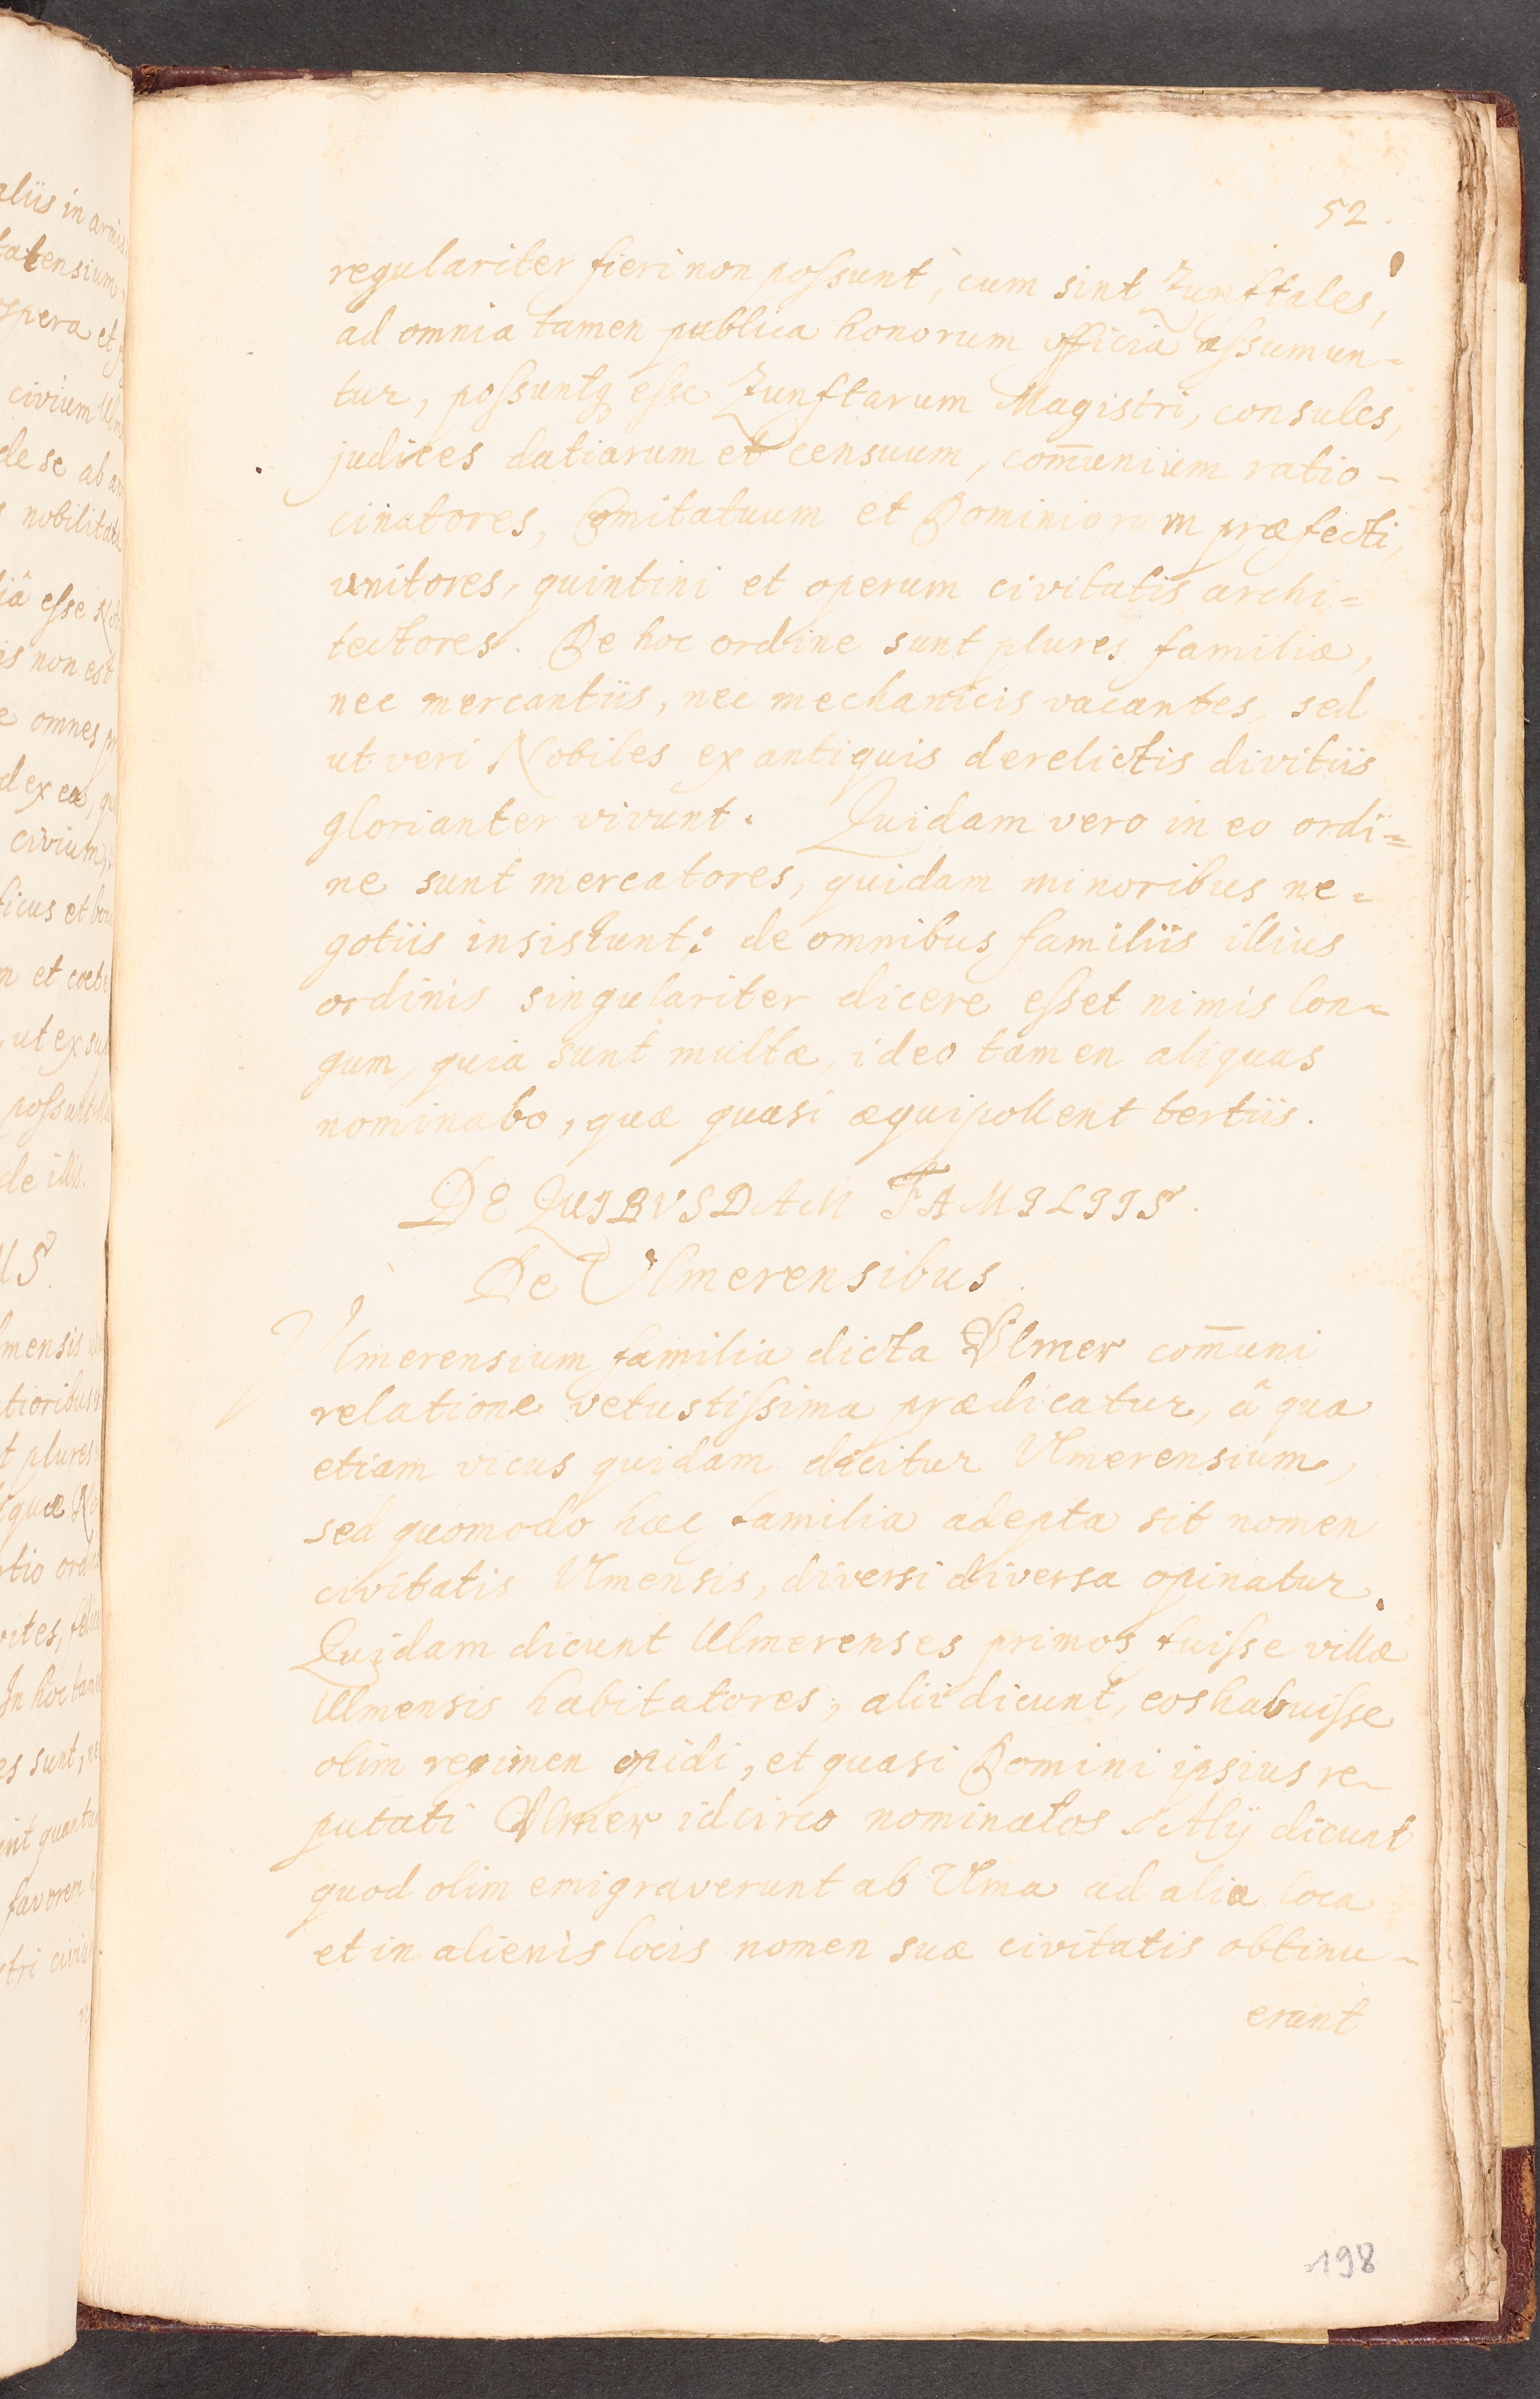 52.
regulariter fieri non possunt, cum sint Zunftales,
ad omnia tamen publica honorum officia assumun=
tur, possuntq esse Zunftarum Magistri, consules,
judices datiarum et censuum, com̅unium ratio-
cinatores, Comitatuum et Dominiorum præfecti,
unitores, quintini et operum civitatis archi=
tectores. De hoc ordine sunt plures familiæ,
nec mercantiis, nec mechanicis vacantes, sed
ut veri Nobiles ex antiquis derelictis divitiis
glorianter vivunt. Quidam vero in eo ordi=
ne sunt mercatores, quidam minoribus ne=
gotiis insistunt: de omnibus familiis illius
ordinis singulariter dicere esset nimis lon-
gum, quia sunt multæ, ideo tamen aliquas
nominabo, quæ quasi æquipollent tertiis.
DE QUIBVSDAM FAMILIIS.
De Ulmerensibus.
Ulmerensium familia dicta Ulmer com̅uni
relatione vetustissima prædicatur, â qua
etiam vicus quidam dicitur Ulmerensium,
sed quomodo hæc familia adepta sit nomen
civitatis Ulmensis, diversi diversa opinatur.
Quidam dicunt Ulmerenses primos fuisse villæ
Ulmensis habitatores, alii dicunt, eos habuisse
olim regimen opidi, et quasi Domini ipsius re-
putati Ulmer idcirco nominatos. Alij dicunt
quod olim emigraverunt ab Ulma ad alia loca
et in alienis locis nomen suæ civitatis obtinu-
erunt
198
aliis in armis
tatensium
opera et
civium Ulm
de se ab
nobilitat
iâ esse
is non est
omnes
d ex ea,
civium,
ficus et
m et
ut ex
possunt
de illis.
US.
lmensis
tioribus
t plures
iquæ
rtio ord
In hoc tam
es sunt,
int quantu
favorem
tri civiu